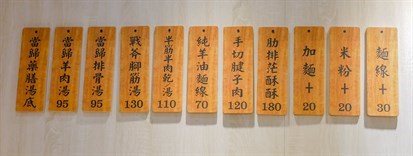 當歸藥膳湯底
當歸羊肉湯
95
當歸排骨湯
95
戰斧腳筋湯
130
半筋半肉乾湯
110
純羊油麵線
70
手切腱子肉
120
肋排茫酥酥
180
加麵+
20
米粉+
20
麵線+
30